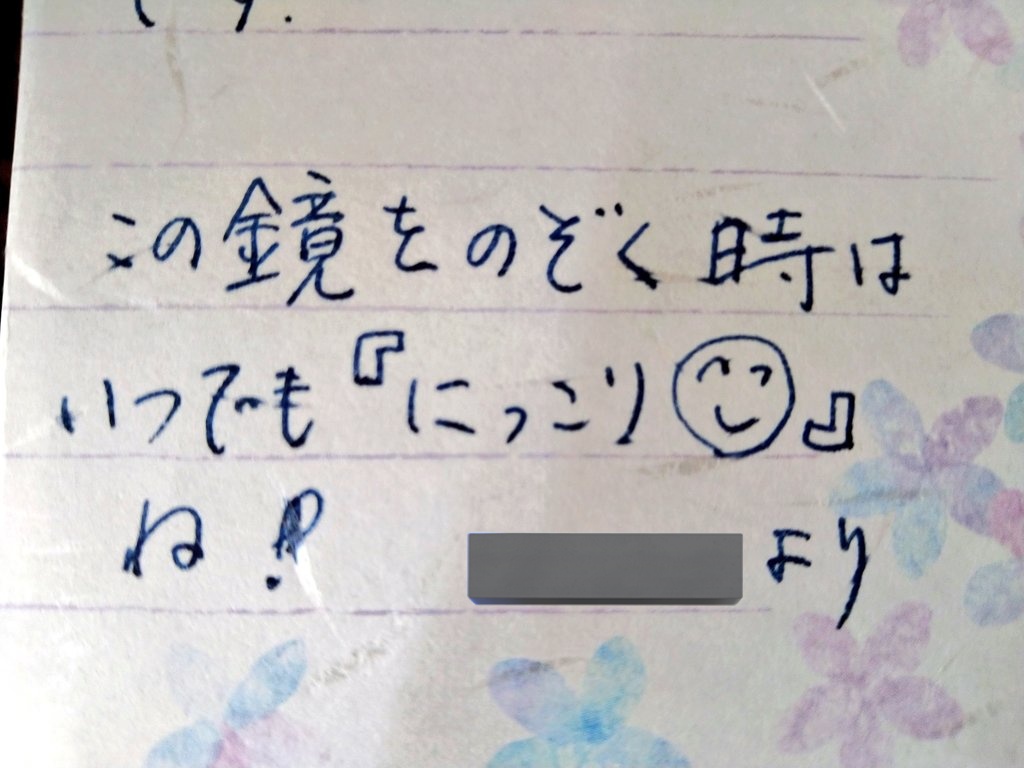 この鏡をのぞく時は
いつでも『にっこり😊』
ね!
より